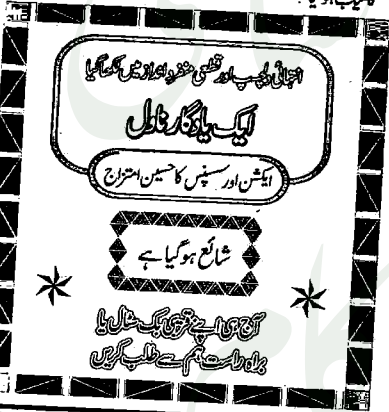 انتہائی دلچسپ اور قطعی منفرد انداز میں لکھا گیا
ایک یادگار ناول
ایکشن اور سسپنس کا حسین امتزاج
شائع ہوگیا ہے
آج ہی اپنے قریبی بک سٹال یا
براہ راست ہم سے طلب کریں